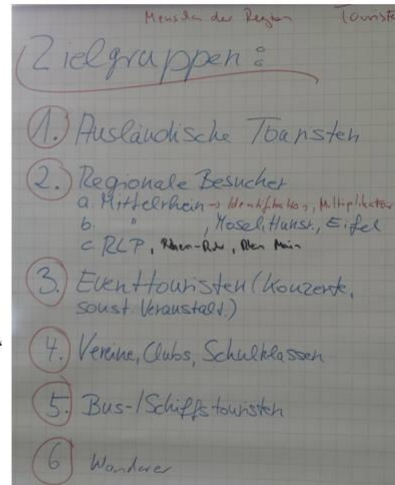 Menschen der Region Touriste
Zielgruppen:
1. Ausländische Touristen
2. Regionale Besucher
a. Mittelrhein → Identifikation, Multiplikator
b. " , Mosel, Hunsr., Eifel
c. RLP, Rhein-Ruhr, Rhein Main
3. Eventtouristen (Konzerte,
sonst. Veranstalt.)
4. Vereine, Clubs, Schulklassen
5. Bus-/Schiffstouristen
6 Wanderer